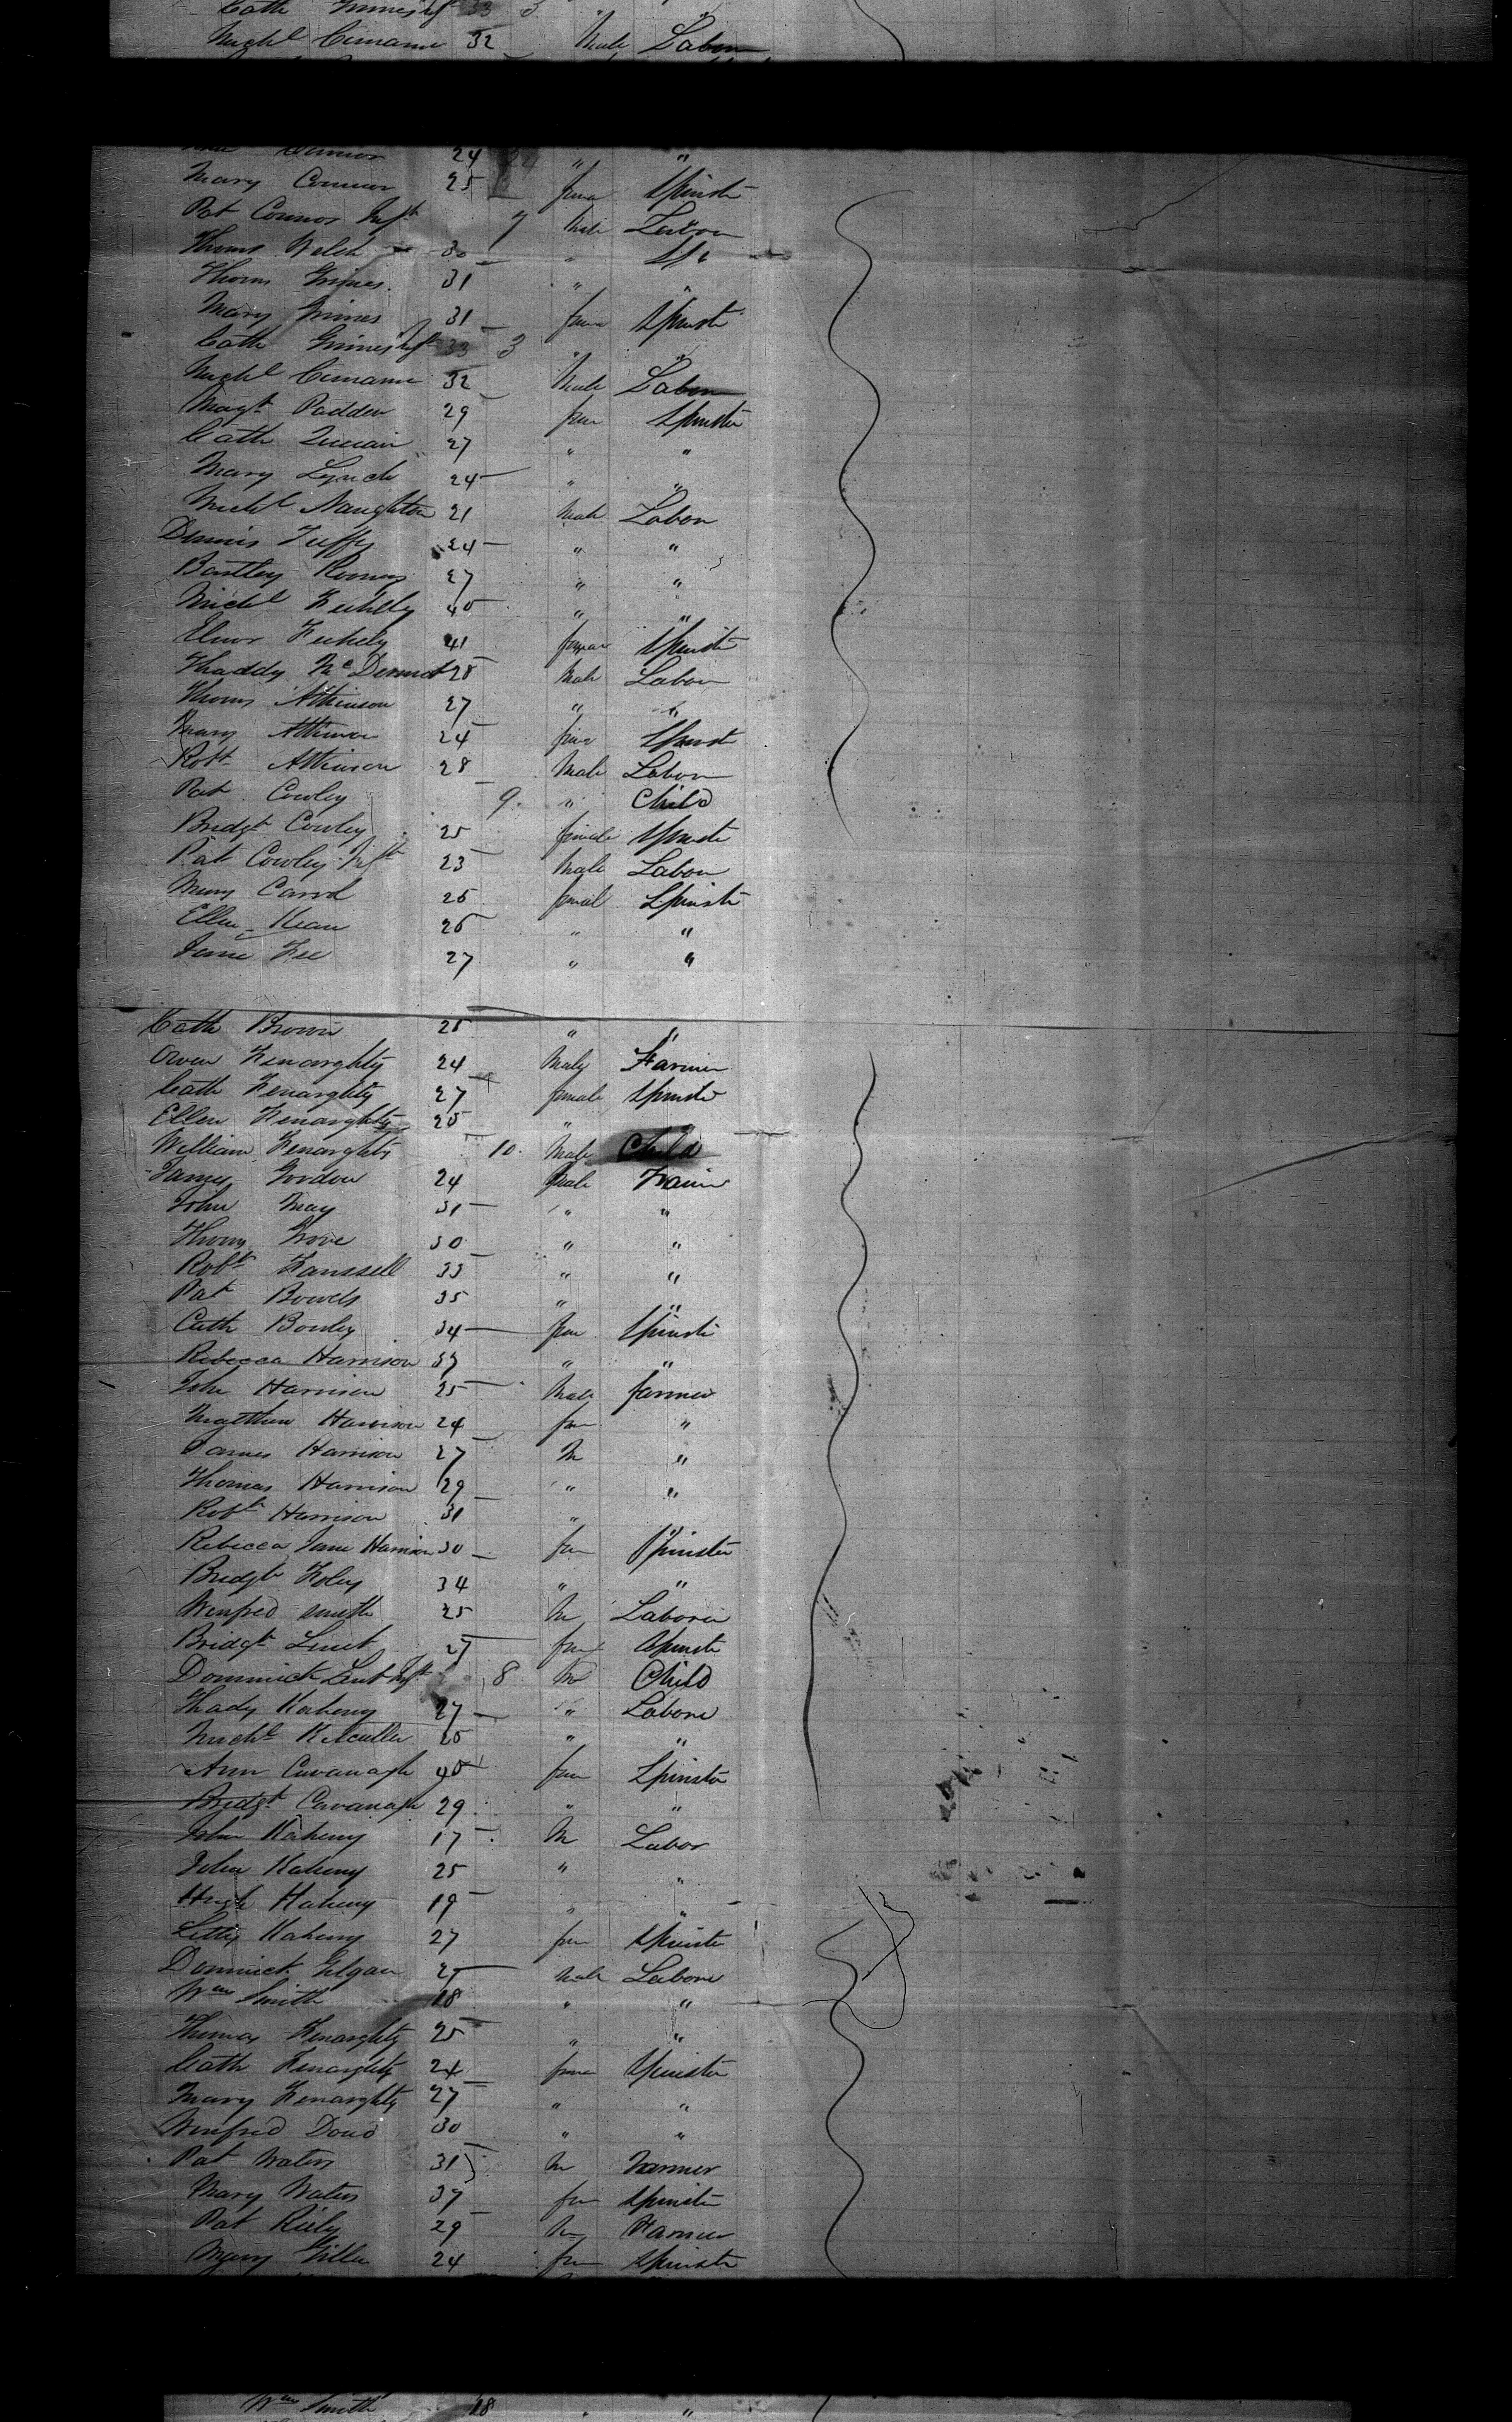 Cath Grimes Inft 33 3 "
Michl Cunnane 32 Male Labour
Connor 24 " "
Mary Connor 25 fema Spinstr
Pat Connor Inft 7 Male Labour
Thoms Welsh 30 " Do
Thoms Grimes 31 " "
Mary Grimes 31 fema Spinstr
Cath Grimes Inft 33 3 " "
Michl Cunnane 32 Male Labour
Magt Padden 29 fem Spinster
Cath 27 " "
Mary Lynch 24 " "
Michl Naughton 21 Male Labour
Dennis Tuffy 24 " "
Bartley Rooney 27 " "
Michl Feehely 40 " "
Elnor Feehely 41 femae Spinstr
Thaddy McDermot 28 Male Labour
Thoms Atkinson 27 " "
Mary Atkinson 24 fema Spinst
Robt Atkinson 28 Male Labour
Pat Cowley 9 " Child
Bridgt Cowley 25 female Spinstr
Pat Cowley Inft 23 Male Labour
Mary Carrol 26 femal Spinstr
Ellen Kean 26 " "
Jane Fee 27 " "
Cath Brown 25 " "
Owen Fenarghty 24 Male Farmer
Cath Fenarghty 27 female Spinster
Ellen Fenarghty 25 "
William Fenarghty 10 Male Child
James Gordon 24 male Farmer
John May 31 " "
Thoms Grove 30 " "
Robt Faussell 33 " "
Pat Bowels 35 " "
Cath Bowley 34 fem Spinstr
Rebecca Harrison 37 " "
John Harrison 25 Male farmer
Matthew Harrison 24 fem "
James Harrison 27 M "
Thomas Harrison 29 " "
Robt Harrison 31 " "
Rebecca Jane Harrison 30 fem Spinster
Bridgt Foley 34 " "
Winfred Smith 25 M Laborer
Bridgt Lent 27 fem Spinstr
Dominick Lent Inft 8 M Child
Thady Kaheny 27 " Labore
Michl 25 " "
Ann Cavanagh 40 fem Spinster
Bridgt Cavanagh 29 " "
John Kaheny 17 M Labor
John Kaheny 25 " "
Hugh Kaheny 19 " "
Letty Kaheny 27 fem Spinster
Dominick Gilgan 27 male Labore
Wm Smith 18 " "
Thomas Fenarghty 25 " "
Cath Fenarghty 24 fema Spinster
Mary Fenarghty 27 " "
Winfred Doud 30 " "
Pat Waters 31 M Farmer
Mary Waters 37 fem Spinster
Pat Riely 29 M Farmer
Mary Gillen 24 fem Spinster
Wm Smith 18 " "